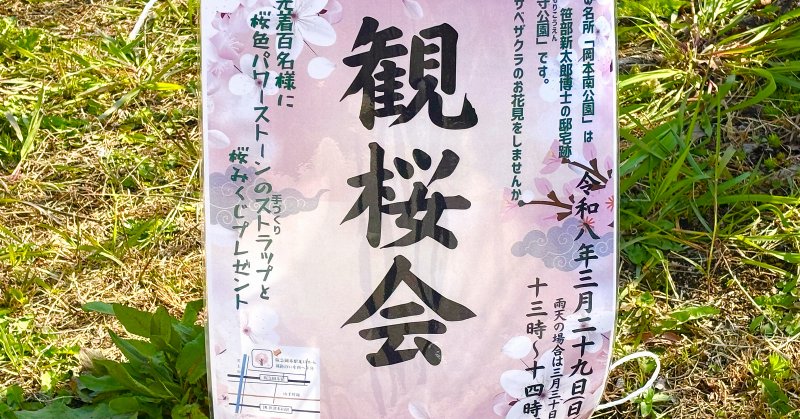 の名所「岡本南公園」は
笹部新太郎博士の邸宅跡
守公園」です。
ササベザクラのお花見をしませんか。
観桜会
令和八年三月二十九日(日
雨天の場合は三月三十日
十三時〜十四時
先着百名様に
桜色パワーストーンのストラップと
桜みくじプレゼント